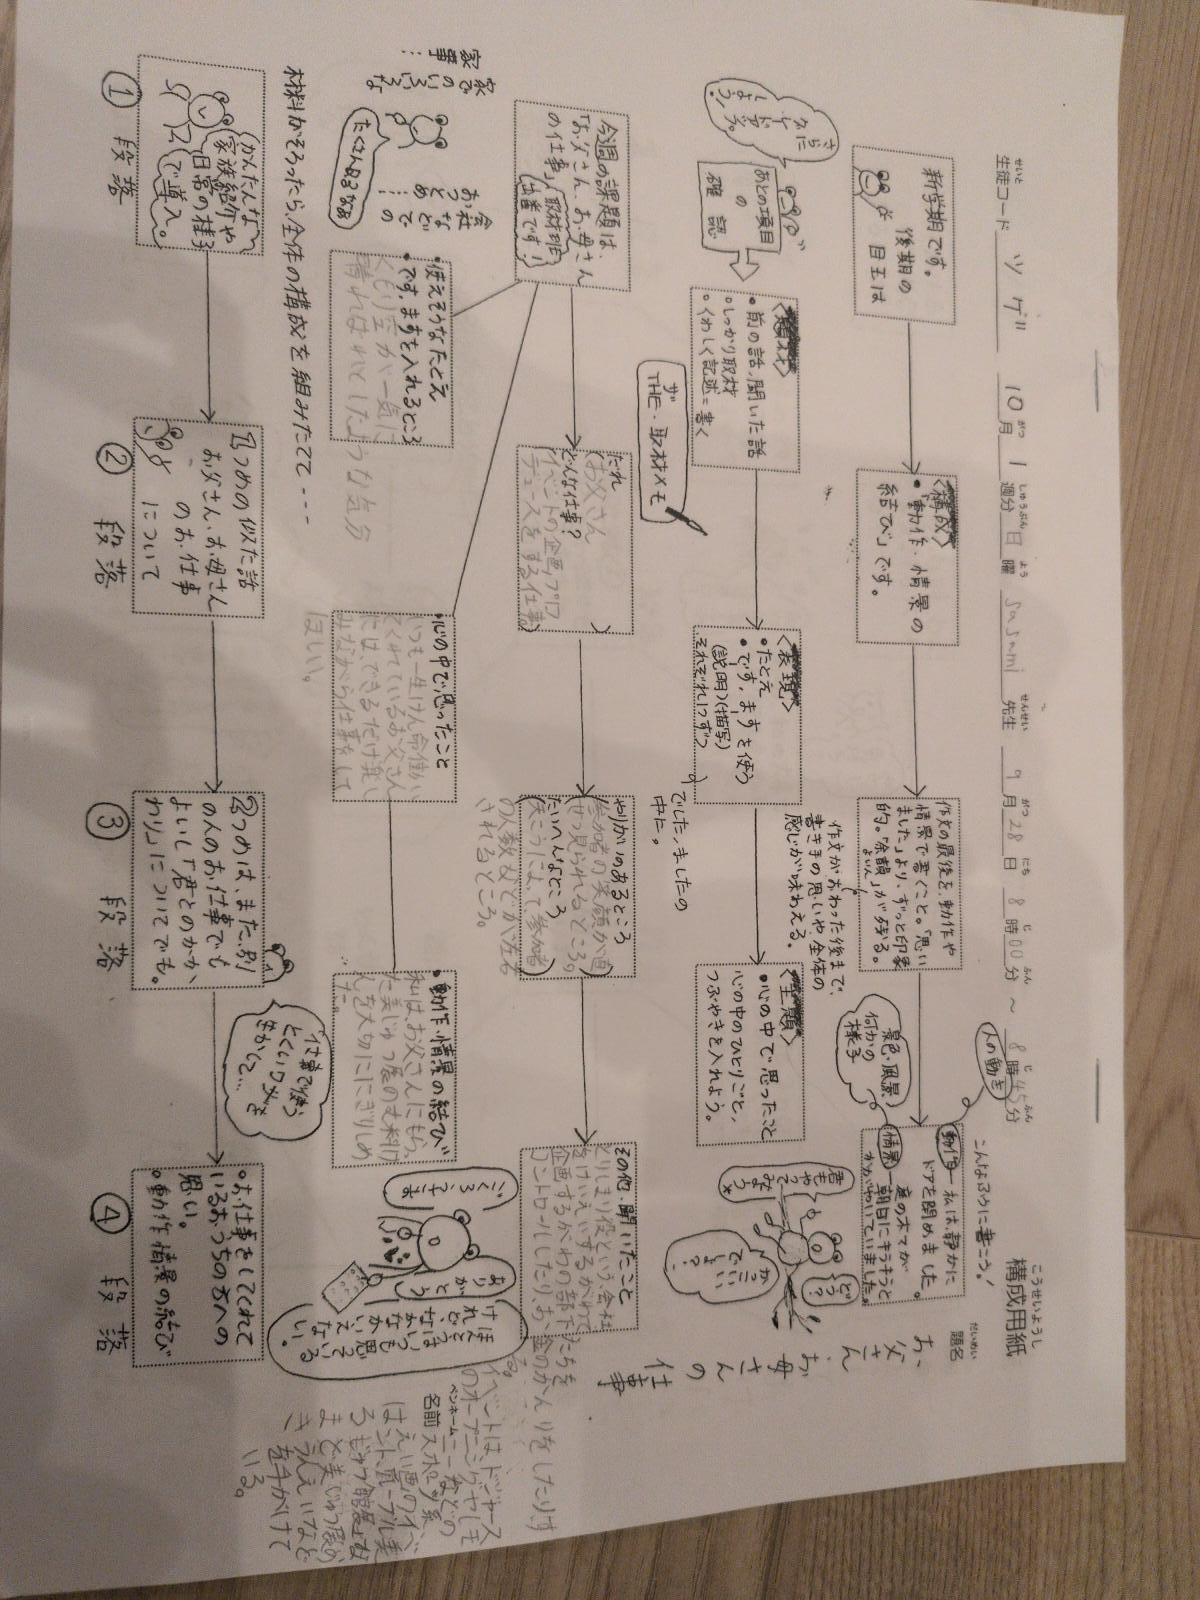 構成用紙
こうせいようし
題名
だいめい
お父さん、お母さんの仕事
生徒コード ツゲ 10月1週分 日曜 sasami先生 9月28日8時00分～8時45分
せいと
がつ しゅうぶん よう せんせい がつ にち じ ふん じ ふん
新学期です。
後期の
目玉は
〈構成〉
・「動作・情景の
結び」です。
作文の最後を、動作や
情景で書くこと。「思い
ました」より、ずっと印象
的。「余韻」が残る。
よいん
作文がおわった後まで、
書き手の思いや、全体の
感じが味わえる。
人の動き
景色・風景
何かの
様子
こんなふうに書こう!
動作―私は、静かに
ドアを閉めました。
情景―庭の木々が
朝日にキラキラと
かがやいていました。
さらに
しよう!
あとの項目
の
確認
〈題材〉
・前の話、聞いた話
・しっかり取材
・くわしく記述=書く
ザ
THE・取材メモ
〈表現〉
・たとえ
・です。ますを使う
(説明)(描写)
それぞれ1つずつ
でした、ましたの
中に。
〈主題〉
・心の中で思ったこと
心の中のひとりごと、
つぶやきを入れよう。
君もやって
みよう*
どう?
かっこいい
でしょ?
今週の課題は、
「お父さん、お母さん
の仕事」
取材班
出番です!
だれ
(お父さん)
どんな仕事?
イベントの企画、プロ
デュースをする仕事。
やりがいのあるところ
(参加者の笑顔が直
せつ見られるところ。)
たいへんなところ
(天こうによって参加者
の人数などが左右
されるところ。
その他、聞いたこと
とりしまり役という会社
をけいえいするかわりで
企画するがわの部下たちを
コントロールしたり、お金のかんりをしたりす
る。
イベントはドジャース
のオープニングセレモ
ニーなどの
スポーツ系、
はえい画のイベ
ント、
家での いろいろな
家事…
会社などでの
おつとめ…
たくさんあるなあ
・使えそうなたとえ
・です。ますを入れるところ
くもり空が一気に
晴れはれてしたような気分
・心の中で思ったこと
いつも一生けん命働い
てくれているお父さん
には、できるだけ楽し
みながら仕事をして
ほしい。
・動作・情景の結び
私は、お父さんにもらっ
た美じゅつ展の
を大切ににぎりしめ
た。
ごくろうさま
ありがとう
ほんとうはいつも思っている
けれど、なかなかいえない。
ペンネーム
名前
材料がそろったら、全体の構成を組みたてて---
かんたんな
家族紹介や
日常の様子
で導入。
① 段落
1つめの似た話
お父さん・お母さん
のお仕事
について
② 段落
2つめは、また、別
の人のお仕事でも
よいし「君とのかか
わり」についてでも。
③ 段落
仕事で使う
とくいワザを
生かして…
・お仕事をしてくれて
いるおうちの方への
思い。
・動作・情景の結び
④ 段落